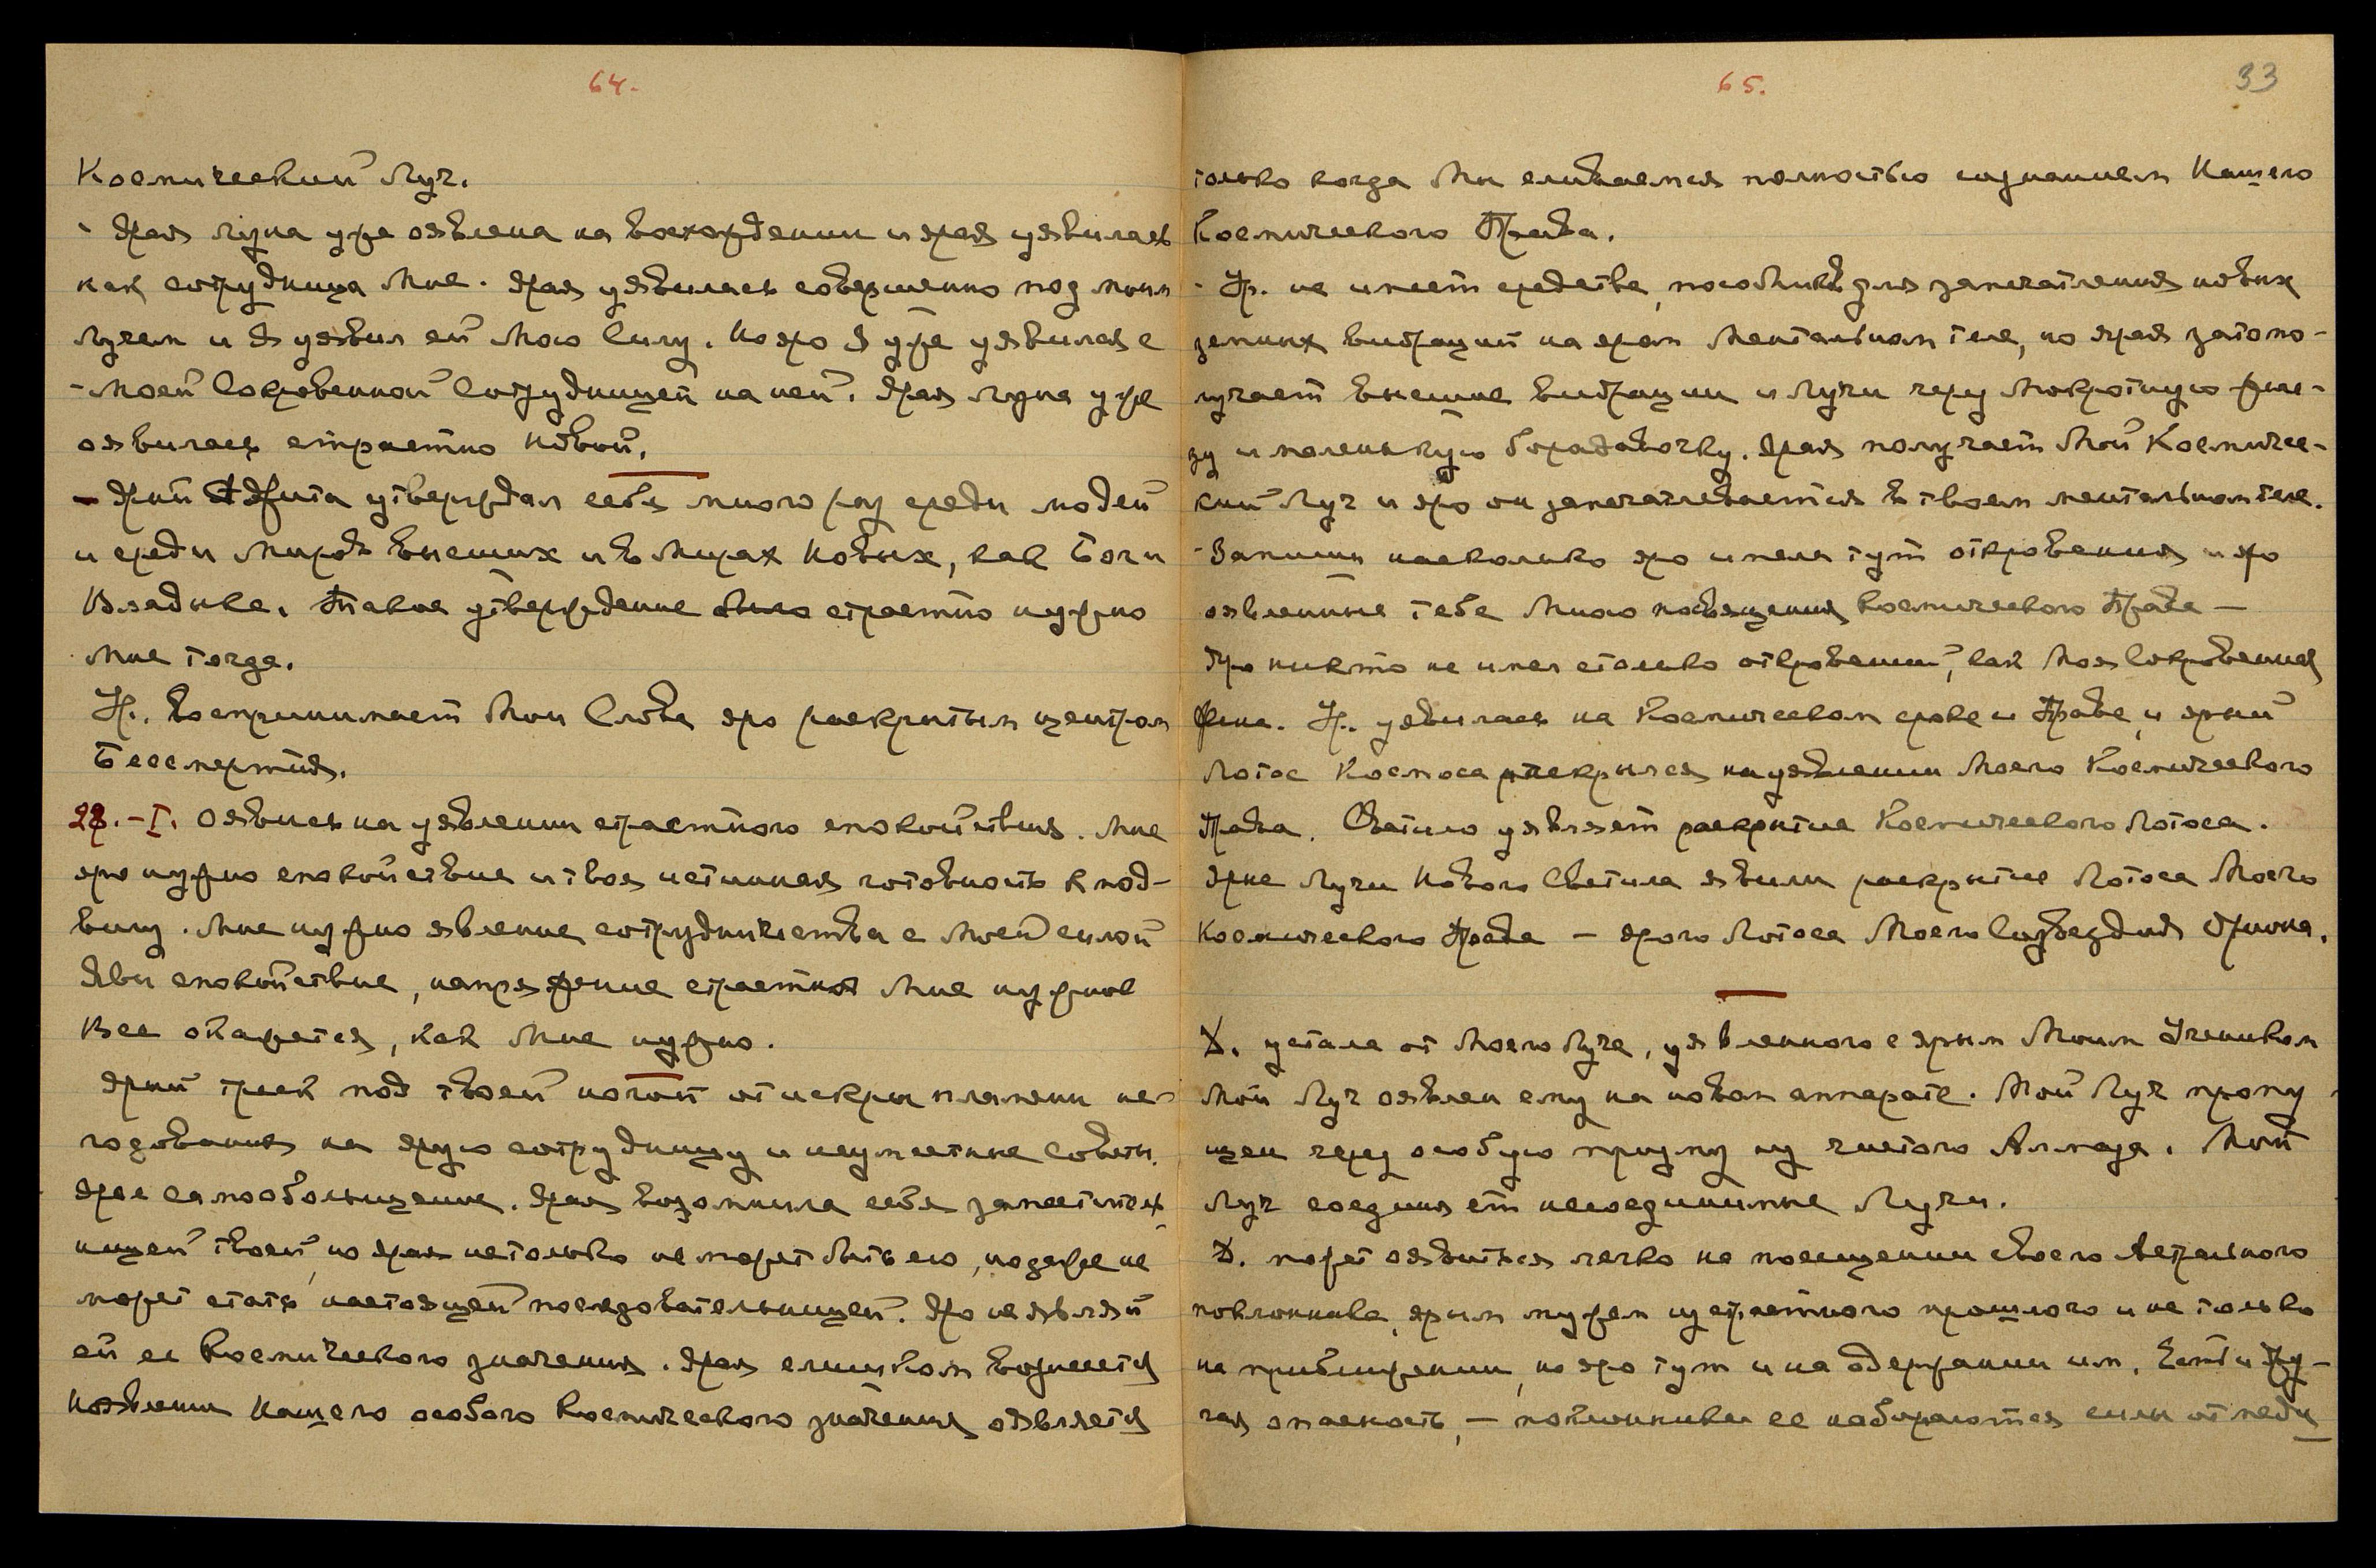 64.
Космический Луч.
- Ярая Луна уже оявлена на восхождении и ярая уявилась
как сотрудница Мне. Ярая уявилась совершенно под моим
лучем и Я уявил ей Мою Силу. Но яро Я уже уявился с
- Моей Сокровенной Сотрудницей на ней. Ярая Луна уже
оявилась страстно новой.
- Ярый утверждал себя много раз среди людей
и среди Миров высших и в Мирах Новых, как Бог и
Владыка. Такое утверждение было страстно нужно
Мне тогда.
Ур. воспринимает Мои Слова яро раскрытым центром
Бессмертия.
28.-I. Оявись на уявлении страстного спокойствия. Мне
яро нужно спокойствие и твоя истинная готовность к под-
вигу. Мне нужно явление сотрудничества с Моей силой
Яви спокойствие, напряжение страстное Мне нужное
Все окажется, как Мне нужно.
Ярый треск под твоей ногой от искры пламени не-
годования на ярую сотрудницу и неуместные Советы.
Ярое самообольщение. Ярая возомнила себя заместитель-
ницей твоей, но ярая не только не может быть ею, но даже не
может стать настоящей последовательницей. Яро не являй
ей ее Космического значения. Ярая слишком вознесется
Но явлении Нашего особого Космического значения оявляется
65.
33
только когда Мы сливаемся полностью сознанием Нашего
Космического Права.
- Ур. не имеет средства, пособников для запечатления новых
земных вибраций на яром Ментальном теле, но ярая зато по-
лучает высшие вибрации и Лучи через Мокротную желе-
зу и маленькую бородавочку. Ярая получает Мой Космичес-
кий Луч и яро он запечатлевается в твоем ментальном теле.
- Запиши насколько яро имела тут откровения и яро
оявленные тебе Мною посвящения Космического Права —
Яро никто не имел столько откровений, как Моя Сокровенная
Жена. Ур. уявилась на Космическом сроке и Праве, и ярый
Лотос Космоса раскрылся на уявлении Моего Космического
Права. Светило уявляет раскрытие Космического Лотоса.
Ярые Лучи Нового Светила явили раскрытие Лотоса Моего
Космического Права — ярого Лотоса Моего Созвездия Ориона.
Х. устала от Моего Луча, уявленного с ярым Моим Учеником
Мой Луч оявлен ему на новом аппарате. Мой Луч пропу-
щен через особую призму из чистого Алмаза. Мой
Луч соединяет несоединимые Лучи.
Х. может оявиться легко на посещении своего Астрального
поклонника, ярым мужем из страстного прошлого и не только
на приближении, но яро тут и на одержании им. Есть и дру-
гая опасность, — поклонники ее набираются силы от меди